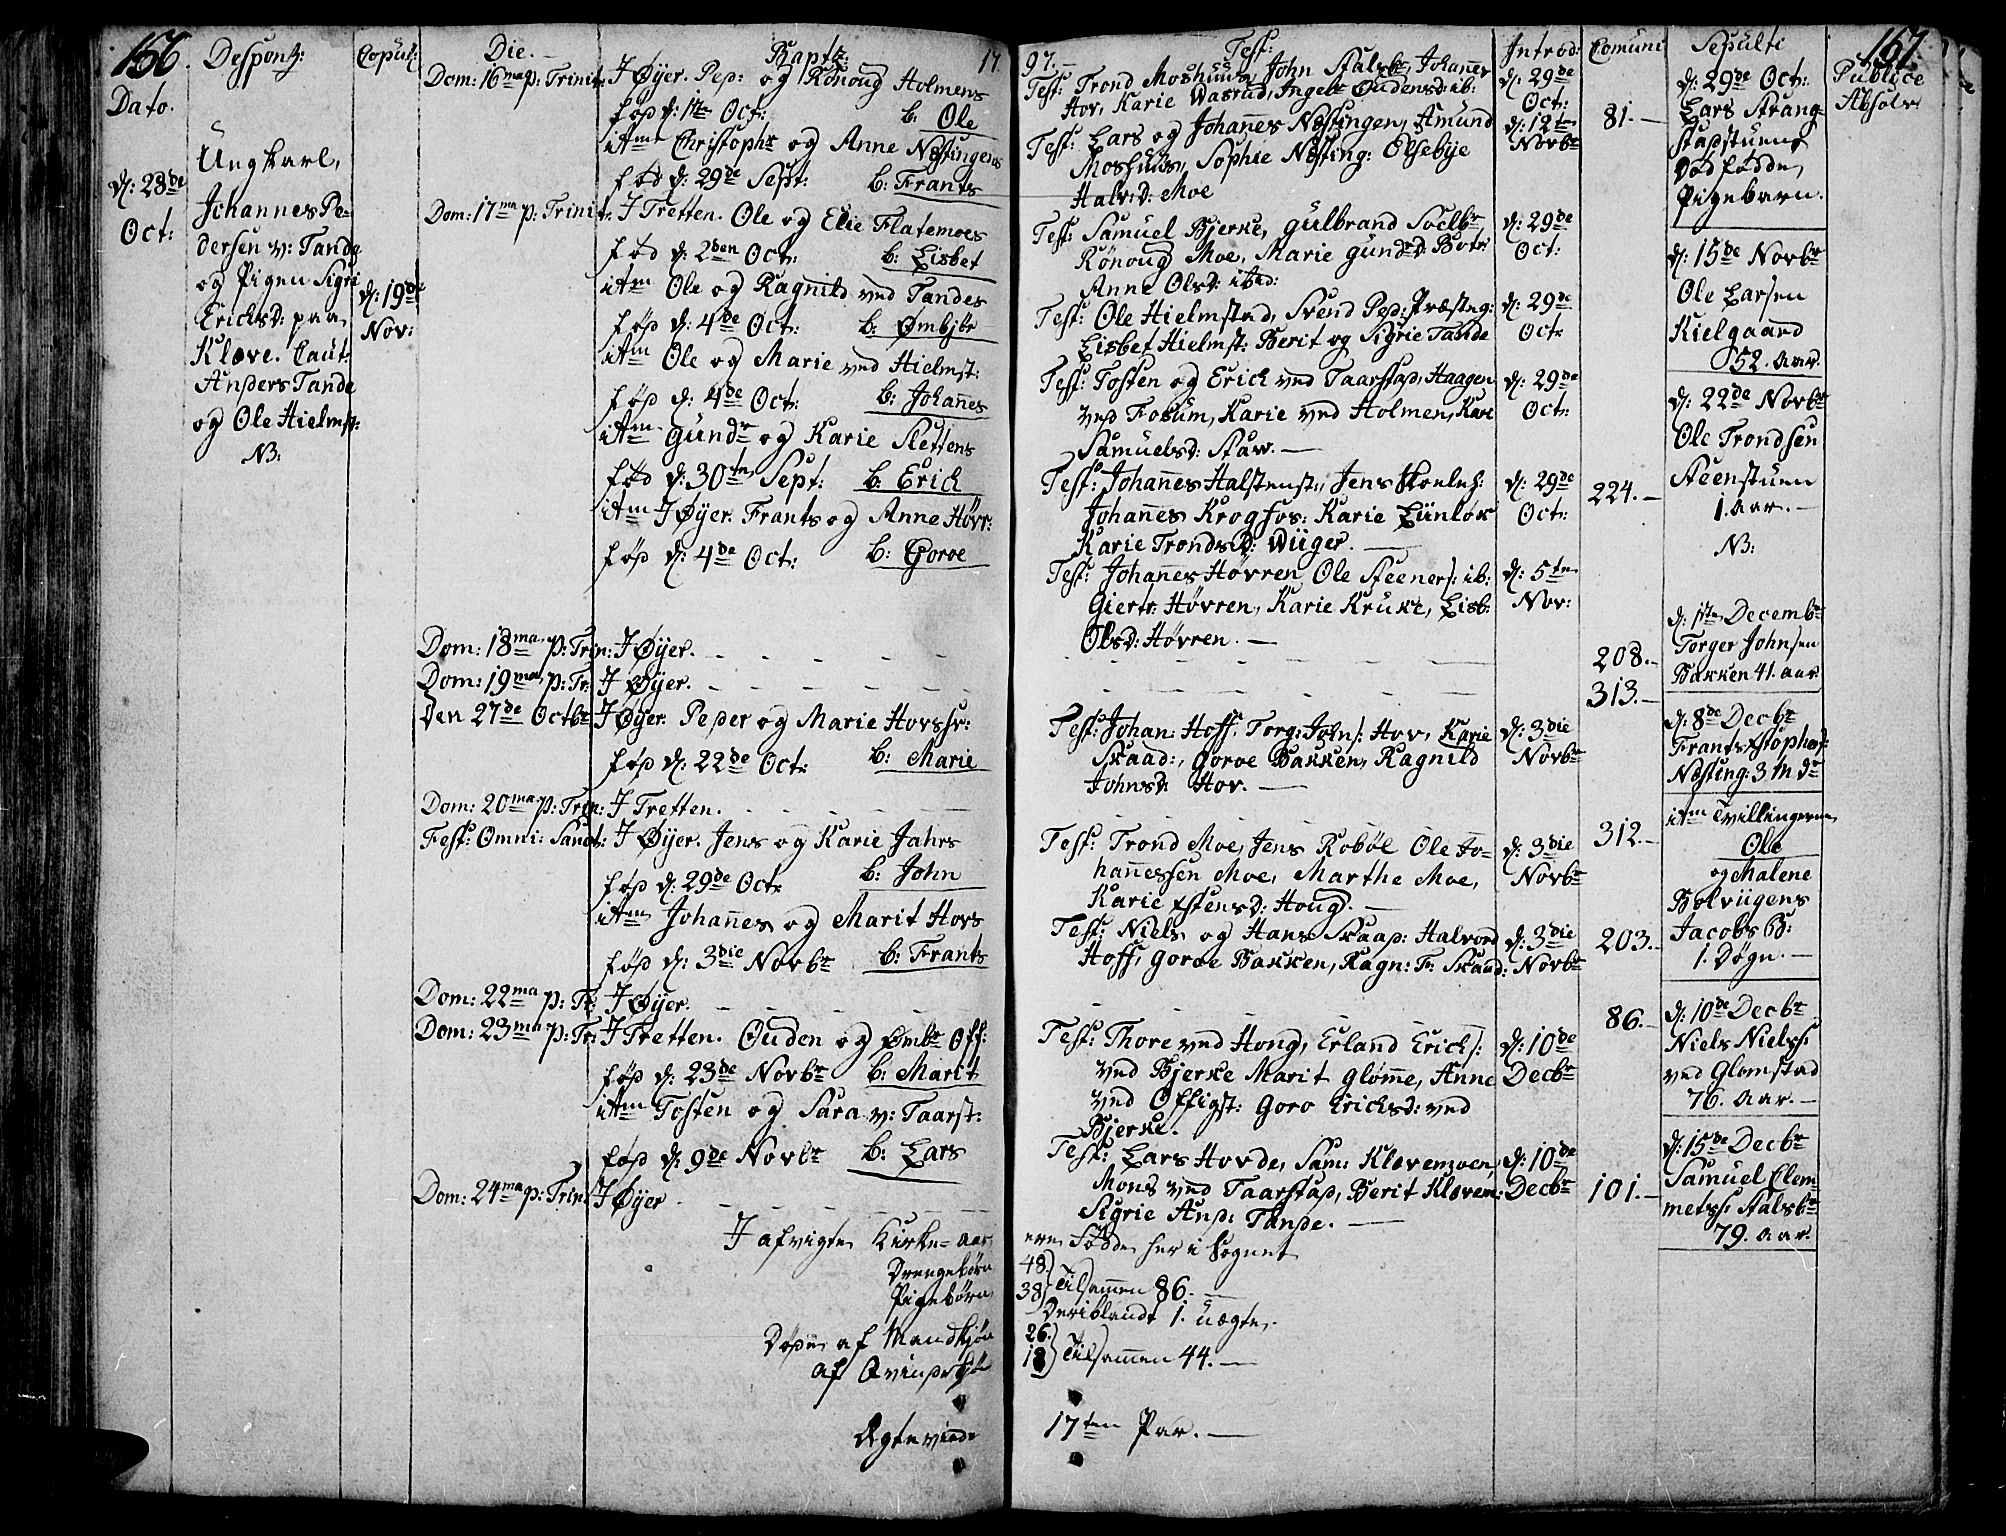 156.
Desponz:
Copul:
Die.
Baptz:
17
Dato.
d: 28de
Oct:
Ungkarl,
Johannes Pe-
dersen v: Tande
og Pigen Sigri
Ericksd: paa
Klove. Caut:
Anders Tande
og Ole Hielmst:
NB:
d: 19de
Nov:
Dom: 16ma p: Trinit: J Øyer. Ped: og Rønoug Holmens
fød d: 1te Oct: b: Ole
item Christophr og Anne Næstingens
fød d: 29de Sept: b: Frants
Dom: 17ma p: Trinit: J Tretten. Ole og Elie Flatemoes
fød d: 2den Oct: b: Lisbet
item Ole og Ragnild ved Tandes
fød d: 4de Oct: b: Ømbjør
item Ole og Marie ved Hielmst:
fød d: 4de Oct: b: Johañes
item Gundr og Karie Slettens
fød d: 30ten Sept: b: Erich
item J Øyer. Frants og Anne Høvr:
fød d: 4de Oct: b: Goroe
Dom: 18ma p: Trin: J Øyer.
Dom: 19ma p: Tr: J Øyer.
Den 27de Octbr J Øyer. Peder og Marie Hovssv:
fød d: 22de Oct: b: Marie
Dom: 20ma p: Trin: J Tretten.
Fest: Omni: Sanct: J Øyer. Jens og Karie Jahrs
fød d: 29de Oct: b: John
item Johañes og Marit Hovs
fød d: 3die Novbr b: Frants
Dom: 22ma p: Tr: J Øyer.
Dom: 23ma p: Tr: J Tretten. Ouden og Ømbr Off:
fød d: 23de Novbr b: Marit
item Tosten og Sara v: Taarst:
fød d: 9de Novbr b: Lars
Dom: 24ma p: Trin: J Øyer
J afvigte Kirke-aar
Drengebörn
Pigebörn
Døde af Mandkjøn
af Qvindekjøn
Ægteviede
97.
Test:
Introd:
Comuni
Sepulti
167.
Publice
Absolv
Test: Trond Moshuus, John Stalsbr, Johañes
Hov, Karie Wasrud, Ingebr Oudensd: ib:
Test: Lars og Johañes Næstingen, Amund
Moshuus, Sophie Næsting: Elsebye
Halvrd: Moe
Test: Samuel Bjerke, Gulbrand Soelbr,
Rønoug Moe, Marie Gundrd: Botr:
Anne Olsd: ibid:
Test: Ole Hielmstad, Svend Ped: Præsteg:
Lisbet Hielmst: Berit og Sigrie Tande
Test: Tosten og Erich ved Taarstad, Haagen
ved Fosum, Karie ved Holmen, Kari
Samuelsd: Stav.
Test: Johañes Halstenst:, Jens Skoeles:
Johañes Krogfos: Karie Lünløk
Karie Trondsd: Wüger.
Test: Johañes Høvren, Ole Steeners: ib:
Giertr: Høvren, Karie Kruke, Lisb:
Olsd: Høvren.
Test: Johan: Hoff, Torg: Johns: Hov, Karie
Skaad:, Goroe Bakken, Ragnild
Johnsd: Hov.
Test: Trond Moe, Jens Robøl Ole Jo-
hañessen Moe, Marthe Moe,
Karie Estensd: Houg.
Test: Niels og Hans Skaad: Halvord
Hoff, Goroe Bakken, Ragn: F: Skaad:
Test: Thore ved Houg, Erland Ericks:
ved Bjerke Marit Glømme, Anne
ved Offigst: Goro Ericksd: ved
Bjerke.
Test: Lars Hovde, Sam: Klovemoen,
Mons ved Taarstad, Berit Klovem:
Sigrie And: Tande.
ere Födde her i Sognet
48.
38. Tilsammen 86.
Deriblandt 1. uægte.
26.
18 Tilsammen 44.
17ten Par.
d: 29de
Oct:
d: 12te
Novbr
d: 29de
Oct:
d: 29de
Oct:
d: 29de
Oct:
d: 29de
Oct:
d: 5te
Nov:
d: 3die
Novbr
d: 3die
Novbr
d: 3die
Novbr
d: 10de
Decbr
d: 10de
Decbr
81.
224.
208.
313.
312.
203.
86.
101.
d: 29de Oct:
Lars Strang-
stadstuens
Dødfødde
Pigebarn.
d: 15de Novbr
Ole Larsen
Kielgaard
52. aar.
d: 22de Novbr
Ole Trondsen
Steenstuen
1. aar.
NB:
d: 1ste Decembr
Torger Johnsen
Bakken 41. aar.
d: 8de Decbr
Frants Xstophers:
Næsting: 3 Mdr
item Tvillingerne
Ole
og Malene
Bolvügens
Jacobs B:
1. Døgn.
d: 10de Decbr
Niels Nielss:
ved Glomstad
76. aar.
d: 15de Decbr
Samuel Clem
mets: Stalsbr
79. aar.